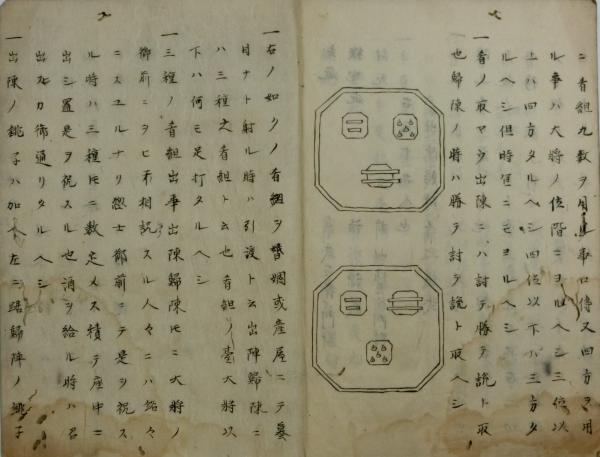 ニ肴組九数ヲ用ル事口傳又四方ヲ用
ル事ハ大将ノ位階ニヨルヘシ三位以
上ハ四方タルヘシ四位以下ハ三方タ
ルヘシ但時宜ニモヨルヘシ
一肴ノ取ヤウ出陳ニハ討テ勝テ訛ト取
也歸陳ノ時ハ勝テ討テ訛ト取ヘシ
一右ノ如クノ肴組ヲ婚姻或産屋ニテ蟇
目ナト射ル時ハ引渡ト云出陣歸陳ニ
ハ三種之肴組ト云也肴組ノ臺大将以
下ハ何モ足打タルヘシ
一三種ノ肴組出事出陳歸陳ﾄﾓニ大将ノ
御前ニヲヒ不相詋スル人々ニハ銘々
ニスユルナリ惣士御前ニテ是ヲ祝ス
ル時ハ三種ﾄﾓニ数足メス積テ座中ニ
出シ置是ヲ祝スル也酒ヲ給ル時ハ召
出スカ御通リタルヘシ
一出陳ノ銚子ハ加ヘ左ニ踞歸陣ノ銚子